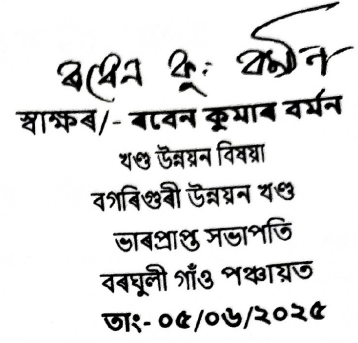 ৰবেন কু: বৰ্মন
স্বাক্ষৰ/- ৰবেন কুমাৰ বৰ্মন
খণ্ড উন্নয়ন বিষয়া
বগৰিগুৰী উন্নয়ন খণ্ড
ভাৰপ্ৰাপ্ত সভাপতি
বৰঘুলী গাঁও পঞ্চায়ত
তাং- ০৫/০৬/২০২৫